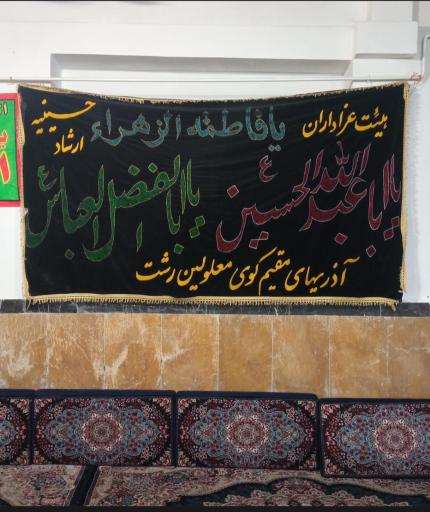 هیئت عزاداران
یا فاطمة الزهراء
حسینیه
ارشاد
یا ابا عبدالله الحسین ع
یا اباالفضل العباس ع
آذریهای مقیم کوی معلولین رشت